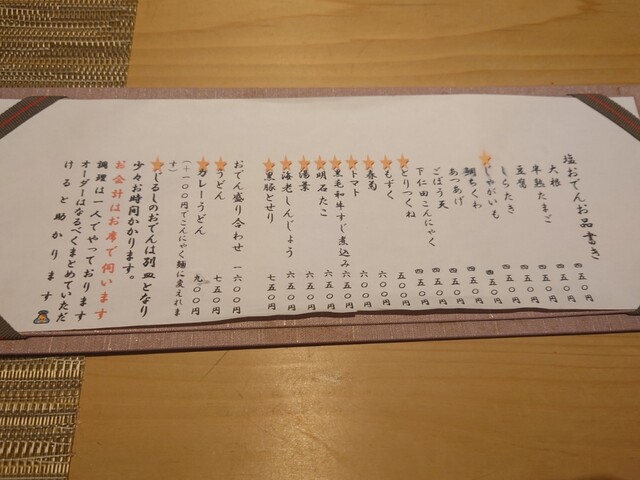 塩おでんお品書き
大根 四五〇円
半熟たまご 四五〇円
豆腐 四五〇円
しらたき 四五〇円
じゃがいも 四五〇円
鯛ちくわ 四五〇円
あつあげ 四五〇円
ごぼう天 四五〇円
下仁田こんにゃく 四五〇円
とりつくね 五〇〇円
もずく 六〇〇円
春菊 六〇〇円
トマト 六五〇円
黒毛和牛すじ煮込み 六五〇円
明石たこ 六五〇円
湯葉 六五〇円
海老しんじょう 六五〇円
黒豚とせり 七五〇円
おでん盛り合わせ 一六〇〇円
うどん 七五〇円
カレーうどん 九〇〇円
(+一〇〇円でこんにゃく麺に変えれま
す)
★じるしのおでんは別皿となり
少々お時間かかります。
お会計はお席で伺います
調理は一人でやっております
オーダーはなるべくまとめていただ
けると助かります